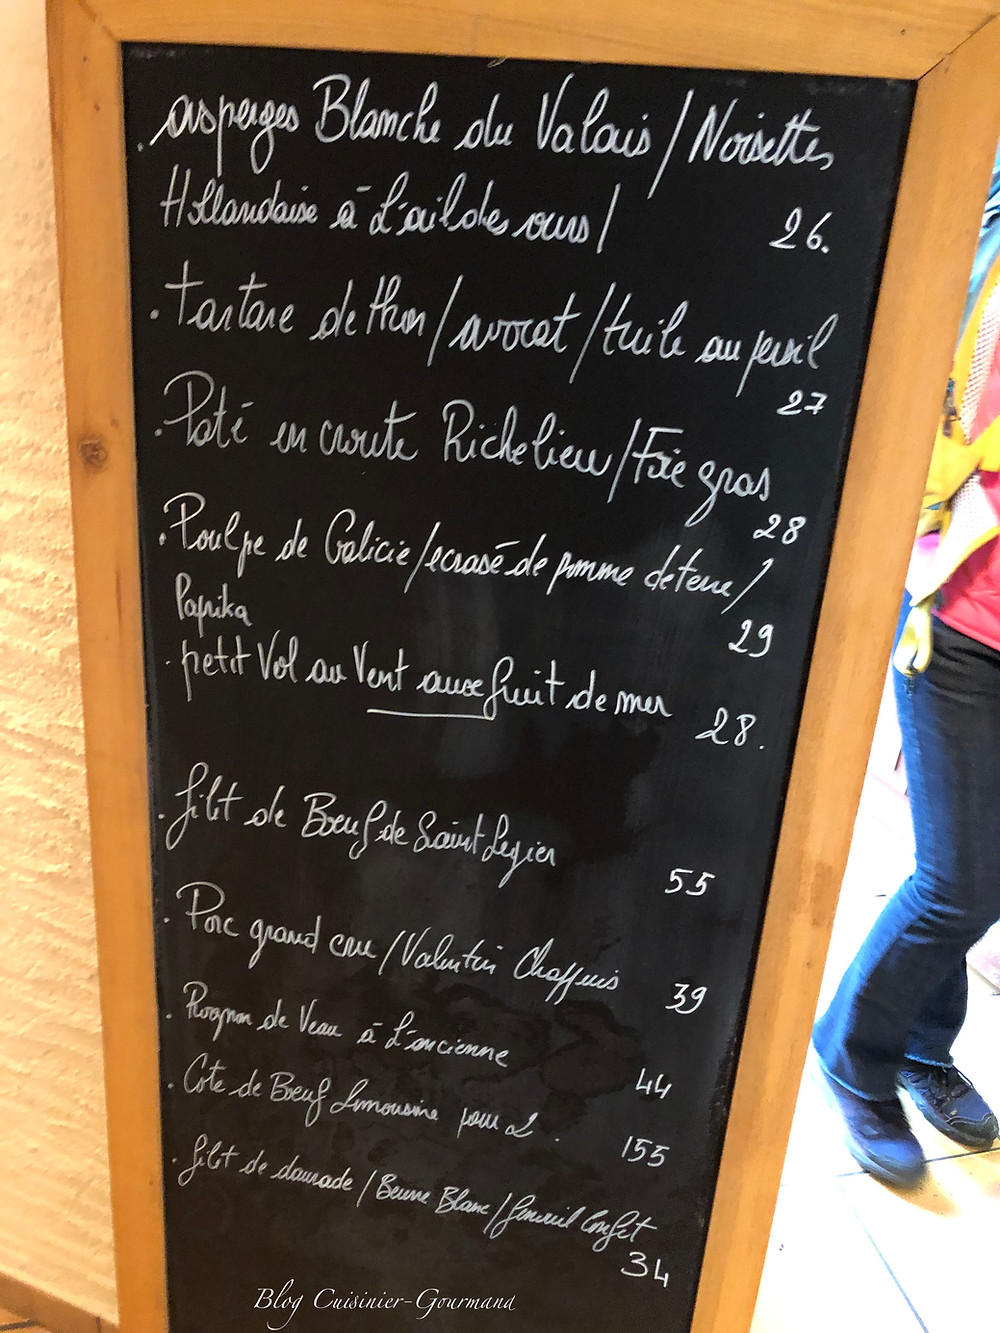 . asperges Blanche du Valais / Noisettes
Hollandaise à L'ail des ours / 26.
. tartare de thon / avocat / tuile au persil
27
. Paté en croute Richelieu / Foie gras
28
. Poulpe de Galicie / ecrasé de pomme de terre /
Paprika 29
. petit Vol au Vent aux fruit de mer 28.
. filet de Boeuf de Saint Legier
55
. Porc grand cru / Valentin Chaffuis 39
. Rognon de Veau à L'ancienne
44
. Cote de Boeuf Limousine pour 2. 155
. filet de daurade / Beurre Blanc / fenouil Confit
34
Blog Cuisinier-Gourmand